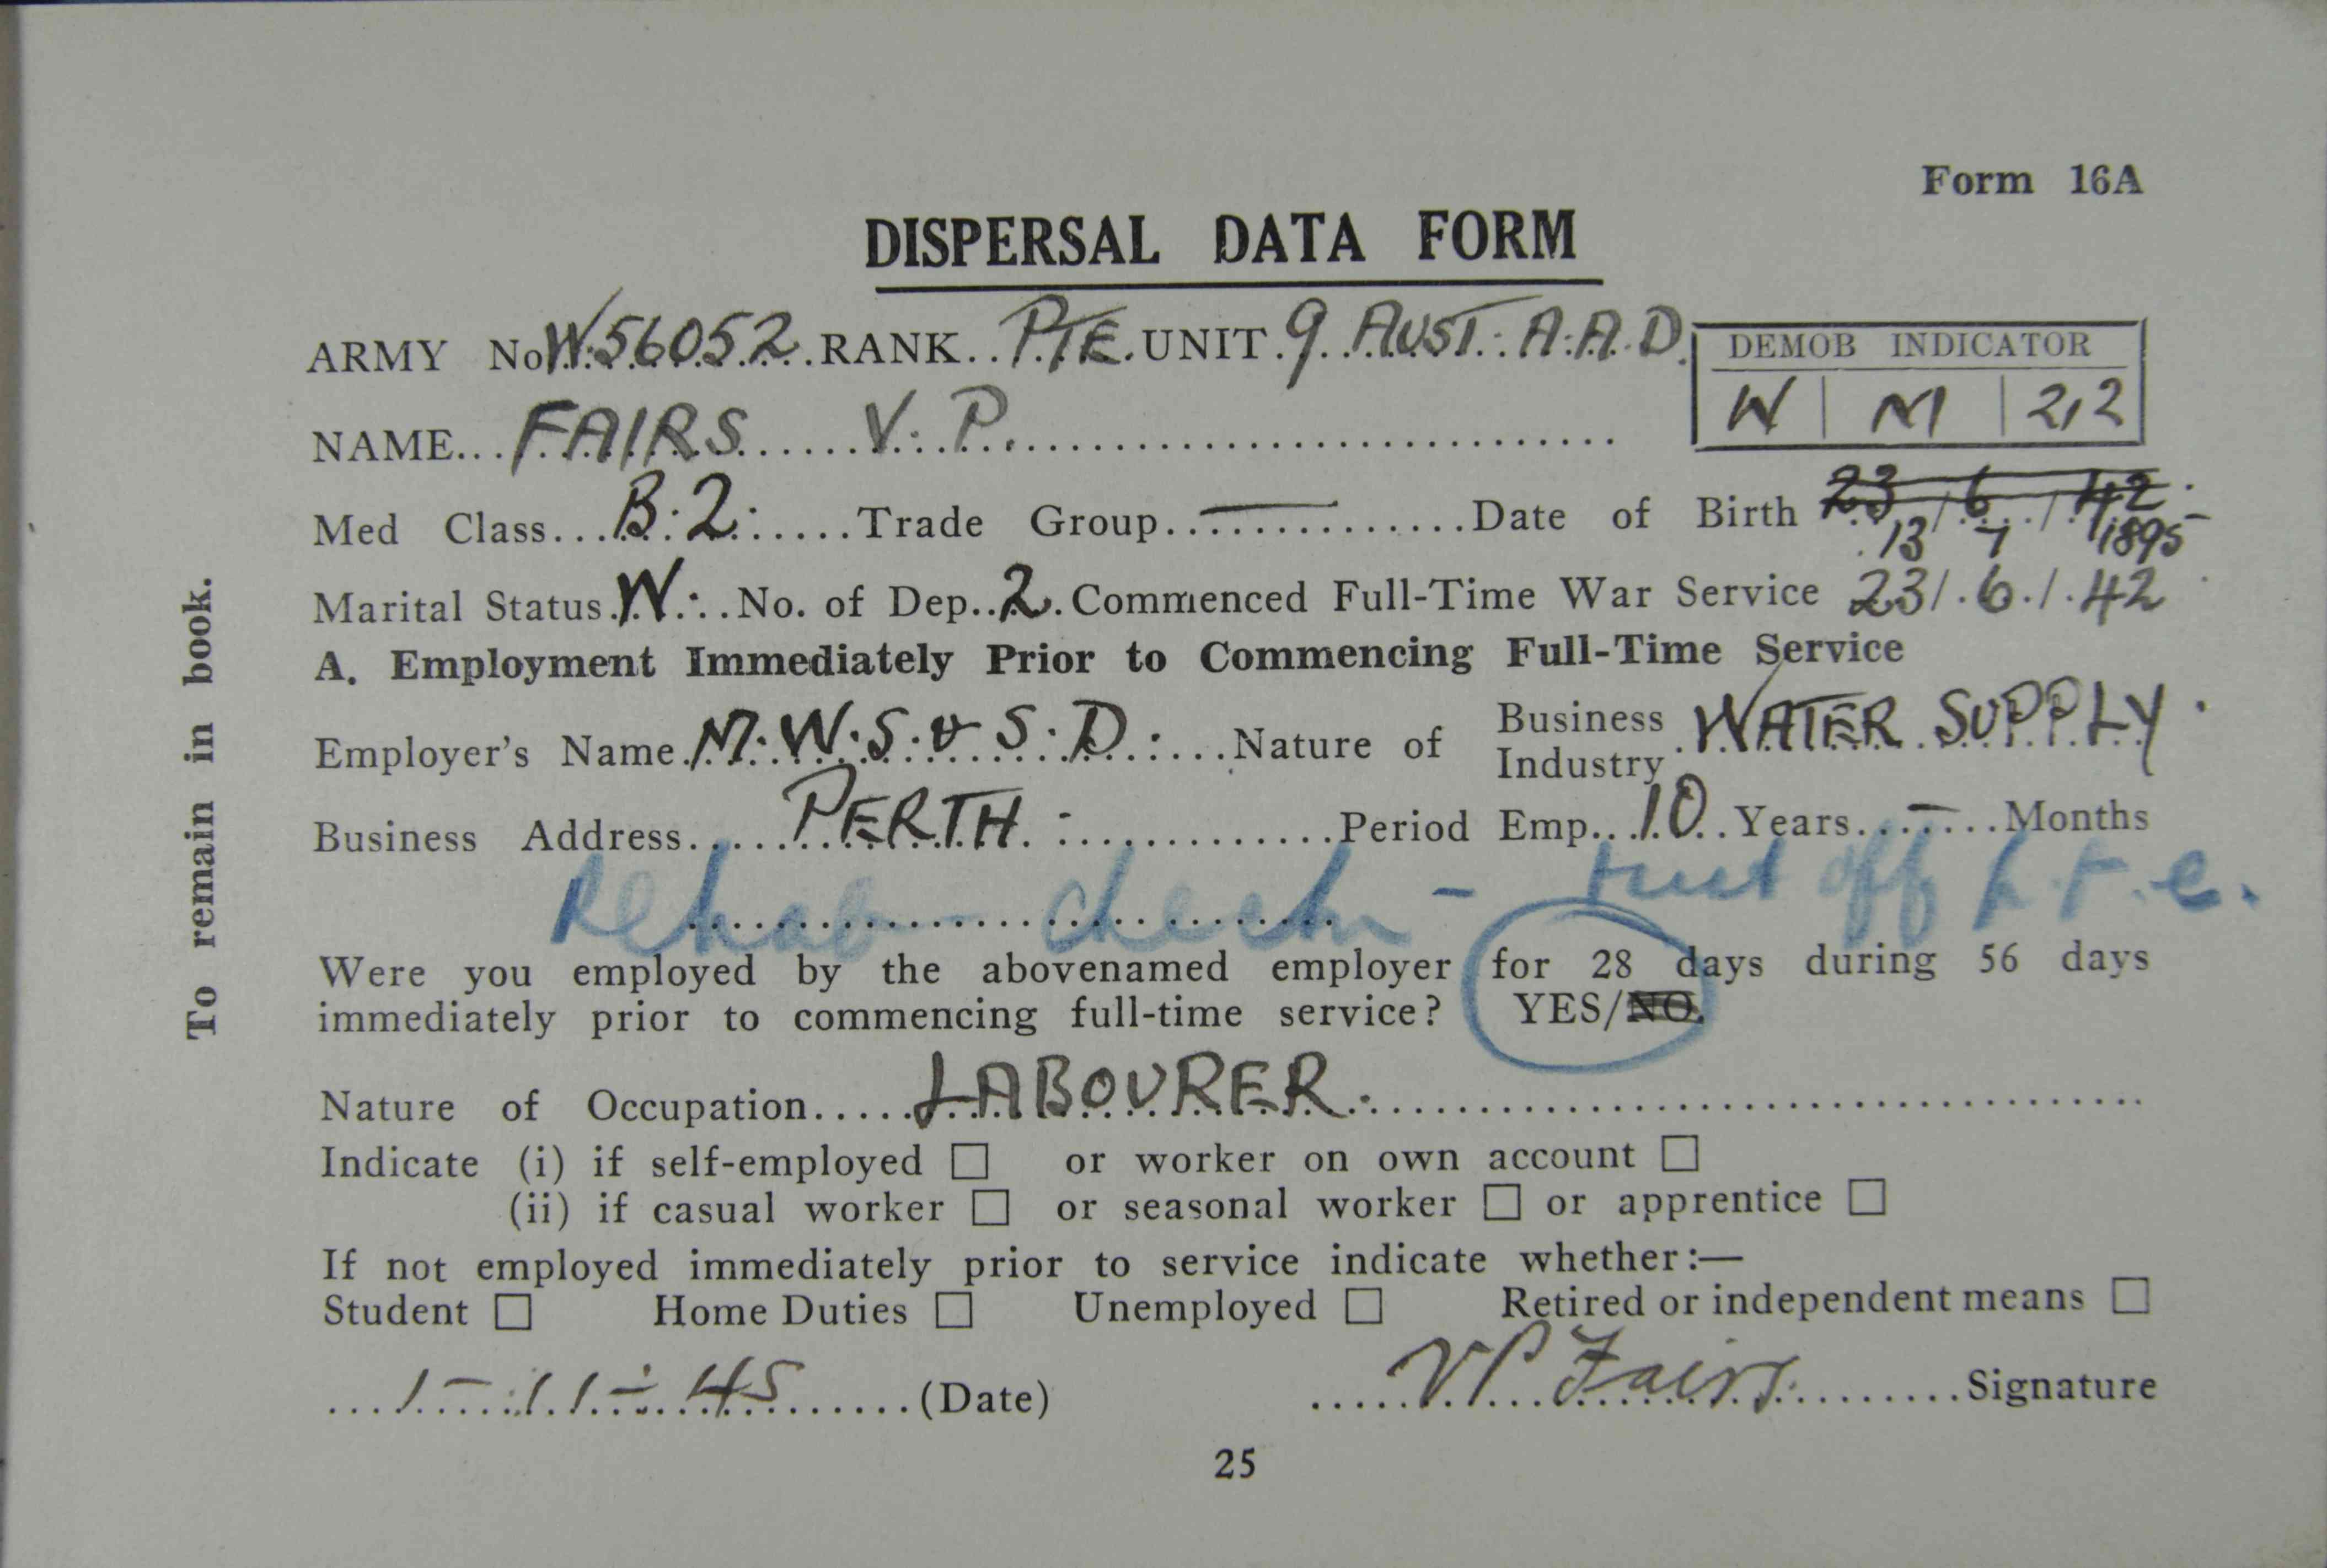 Form 16A
DISPERSAL DATA FORM
ARMY No W.56052 RANK PTE UNIT 9 AUST. A.A.D.
DEMOB INDICATOR
W M 212
NAME FAIRS V. P.
Med Class B.2. Trade Group — Date of Birth 23/6/42
13 7 1895
Marital Status W. No. of Dep. 2 Commenced Full-Time War Service 23/6/42
A. Employment Immediately Prior to Commencing Full-Time Service
Employer's Name M.W.S. & S.D. Nature of Business Industry WATER SUPPLY.
Business Address PERTH. Period Emp. 10 Years — Months
Rehab check - off
Were you employed by the abovenamed employer for 28 days during 56 days
immediately prior to commencing full-time service? YES/NO.
Nature of Occupation LABOURER.
Indicate (i) if self-employed □ or worker on own account □
(ii) if casual worker □ or seasonal worker □ or apprentice □
If not employed immediately prior to service indicate whether:—
Student □ Home Duties □ Unemployed □ Retired or independent means □
1-11-45 (Date) VP Fairs Signature
25
To remain in book.